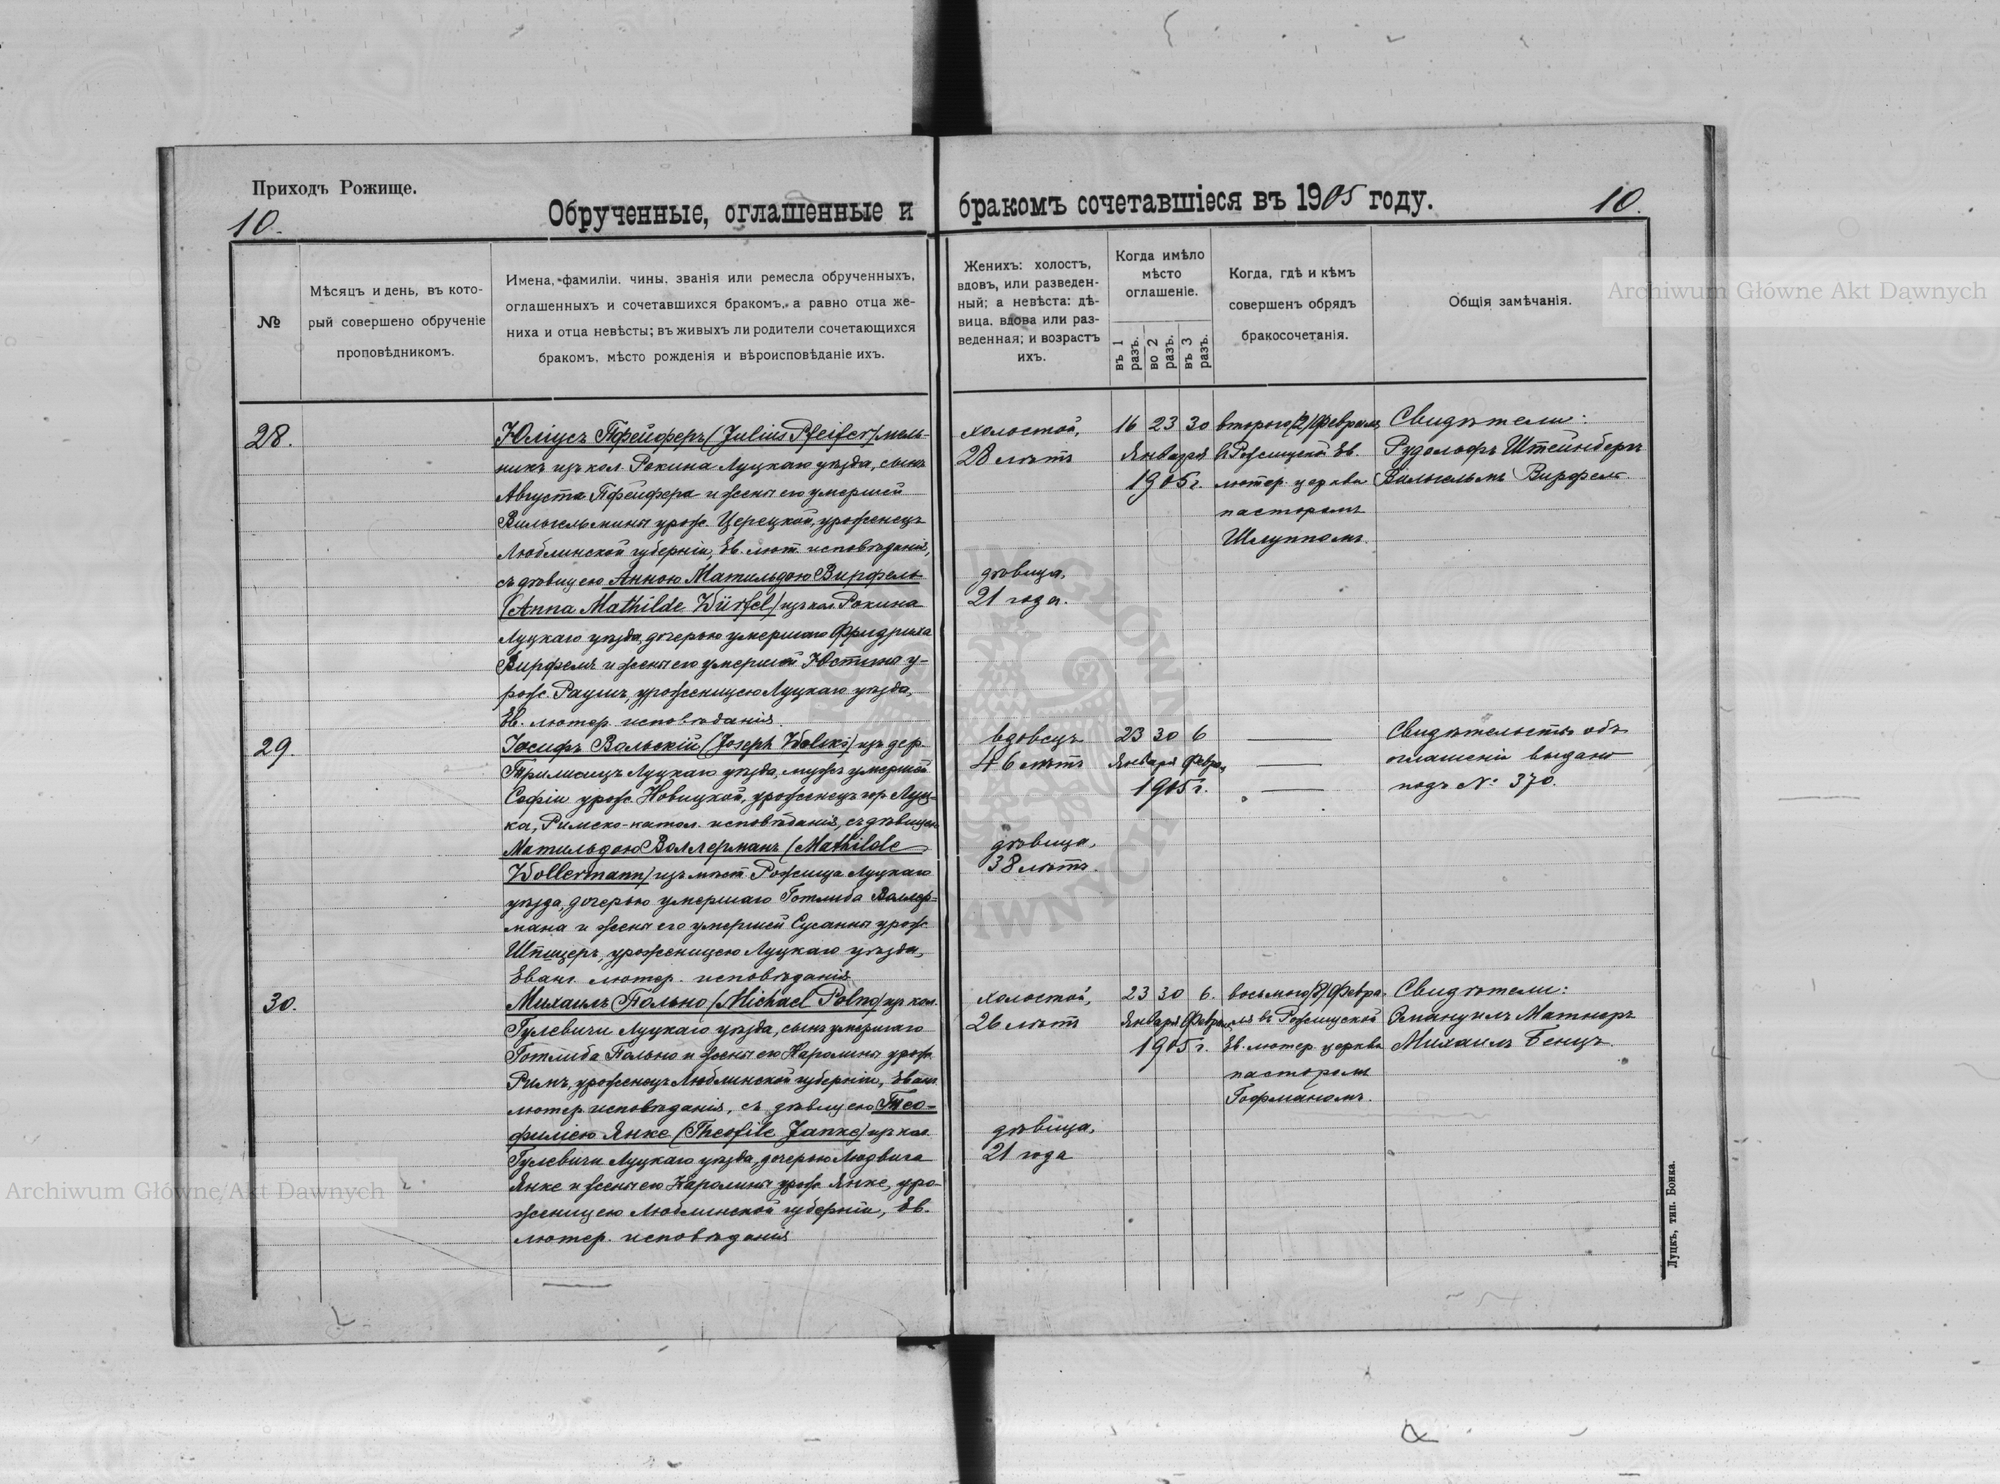 Приходъ Рожище.
10.
Обрученные, оглашенные и бракомъ сочетавшіеся въ 1905 году.
10.
№
Мѣсяцъ и день, въ кото-
рый совершено обрученіе
проповѣдникомъ.
Имена, фамиліи, чины, званія или ремесла обрученныхъ,
оглашенныхъ и сочетавшихся бракомъ, а равно отца же-
ниха и отца невѣсты; въ живыхъ ли родители сочетающихся
бракомъ, мѣсто рожденія и вѣроисповѣданіе ихъ.
Женихъ: холостъ,
вдовъ, или разведен-
ный; а невѣста: дѣ-
вица, вдова или раз-
веденная; и возрастъ
ихъ.
Когда имѣло
мѣсто
оглашеніе.
въ 1 разъ.
во 2 разъ.
въ 3 разъ.
Когда, гдѣ и кѣмъ
совершенъ обрядъ
бракосочетанія.
Общія замѣчанія.
28.
Юліусъ Пфейферъ (Julius Pfeifer) мель-
никъ изъ кол. Рокина Луцкаго уѣзда, сынъ
Августа Пфейфера и жены его умершей
Вильгельмины урож. Церецкой, уроженецъ
Люблинской губерніи, Ев. лют. исповѣданія,
съ дѣвицею Анною Матильдою Вирфель
(Anna Mathilde Würfel) изъ кол. Рокина
Луцкаго уѣзда, дочерью умершаго Фридриха
Вирфель и жены его умершей Юстины у-
рож. Раушъ, уроженицею Луцкаго уѣзда,
Ев. лютер. исповѣданія.
холостой,
28 лѣтъ
дѣвица,
21 года.
16 23 30
Января
1905 г.
второго /2/ Февраля
въ Рожищской Ев.
лютер. церкви
пасторомъ
Шлуппомъ.
Свидѣтели:
Рудольфъ Штейнбергъ
Вильгельмъ Вирфель.
29.
Іосифъ Вольскій (Joseph Wolski) изъ дер.
Луцкаго уѣзда, мужъ умершей
Софіи урож. Новицкой, уроженецъ гор. Луц-
ка, Римско-катол. исповѣданія, съ дѣвицею
Матильдою Воллерманъ (Mathilde
Wollermann) изъ мѣст. Рожища Луцкаго
уѣзда, дочерью умершаго Готлиба Воллер-
мана и жены его умершей Сусанны урож.
Шпицеръ, уроженицею Луцкаго уѣзда,
Еванг. лютер. исповѣданія
вдовецъ
46 лѣтъ
дѣвица,
38 лѣтъ.
23 30 6
Января Февра.
1905 г.
Свидѣтельство объ
оглашеніи выдано
подъ № 370.
30.
Михаилъ Польно (Michael Polno) из кол.
Гулевичи Луцкаго уѣзда, сынъ умершаго
Готлиба Польно и жены его Каролины урож.
Римъ, уроженецъ Люблинской губерніи, Еванг.
лютер. исповѣданія, съ дѣвицею Тео-
филіею Янке (Theofile Janke) из кол.
Гулевичи Луцкаго уѣзда, дочерью Людвига
Янке и жены его Каролины урож. Янке, уро-
женицею Люблинской губерніи, Ев.
лютер. исповѣданія
холостой,
26 лѣтъ
дѣвица,
21 года
23 30 6.
Января Февраля
1905 г.
восьмого /8/ Февра-
ля въ Рожищской
Ев. лютер. церкви
пасторомъ
Гофманомъ.
Свидѣтели:
Эмануилъ Матнеръ
Михаилъ Бенцъ.
Луцкъ, тип. Бонка.
Archiwum Główne Akt Dawnych
Archiwum Główne Akt Dawnych